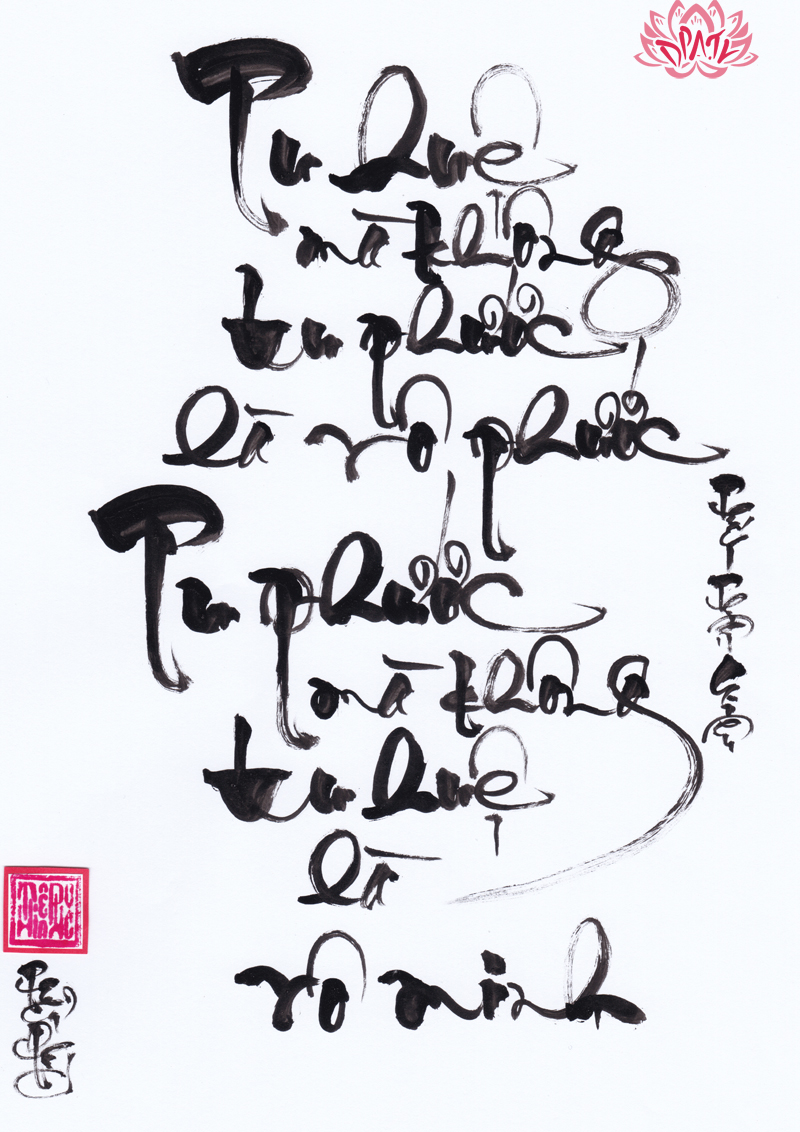 DPATV
Tu huệ
mà không
tu phước
là vô phước
Tu phước
mà không
tu huệ
là
vô minh